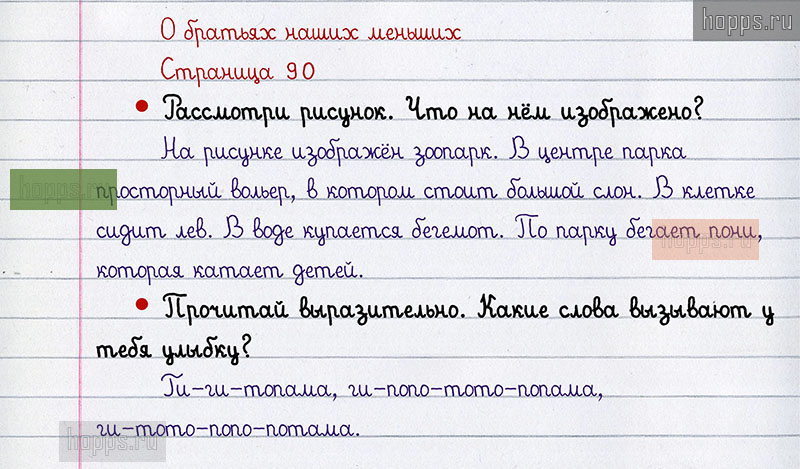 hopps.ru
О братьях наших меньших
Страница 90
• Рассмотри рисунок. Что на нём изображено?
На рисунке изображён зоопарк. В центре парка
hopps.ru
просторный вольер, в котором стоит большой слон. В клетке
сидит лев. В воде купается бегемот. По парку бегает пони,
hopps.ru
которая катает детей.
• Прочитай выразительно. Какие слова вызывают у
тебя улыбку?
Ги-ги-топама, ги-попо-тото-попама,
ги-тото-попо-потама.
hopps.ru